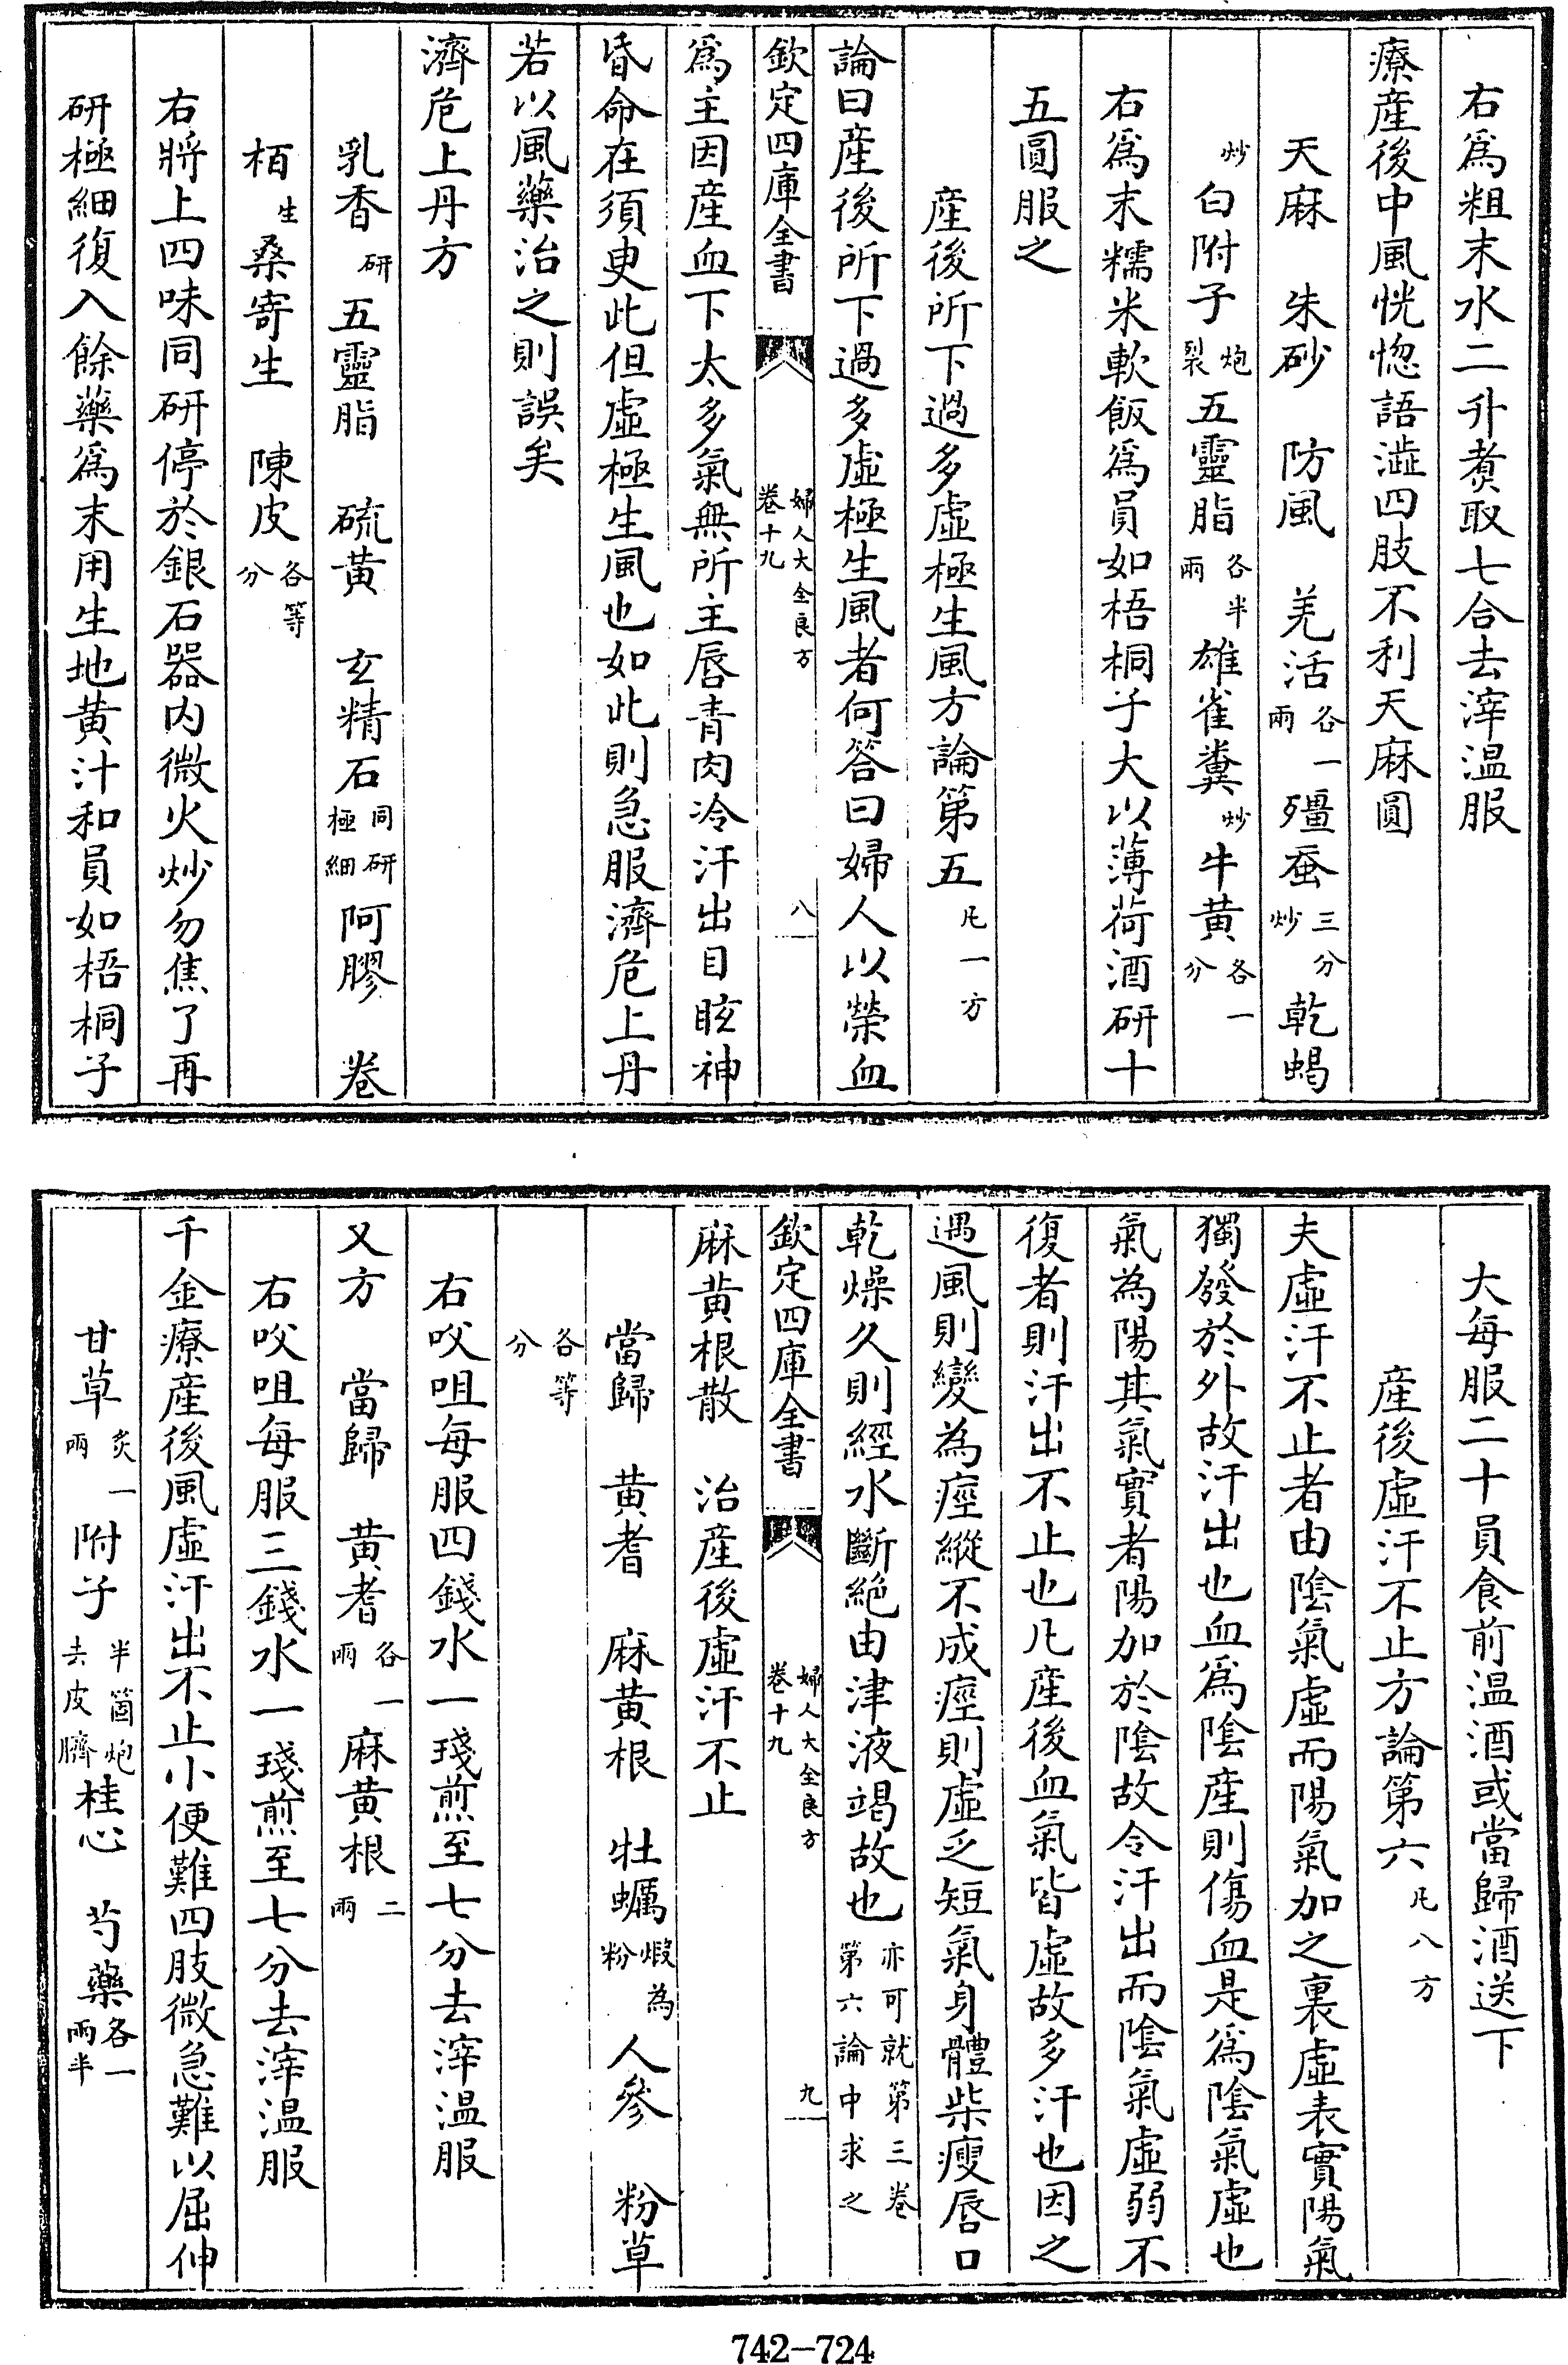 右爲粗末水二升煑取七合去滓温服
療產後中風恍惚語澁四肢不利天麻圓
天麻　朱砂　防風　羌活各一兩殭蚕三分炒乾蝎
炒白附子炮裂五靈脂各半兩雄雀糞炒牛黄各一分
右爲末糯米軟飯爲員如梧桐子大以薄荷酒研十
五圓服之
產後所下過多虚極生風方論第五凡一方
論曰產後所下過多虚極生風者何答曰婦人以榮血
欽定四庫全書　婦人大全良方卷十九　八
爲主因產血下太多氣無所主唇青肉冷汗出目眩神
昏命在須臾此但虚極生風也如此則急服濟危上丹
若以風藥治之則誤矣
濟危上丹方
乳香研五靈脂　硫黄　玄精石同研極細阿膠　卷
栢生桑寄生　陳皮各等分
右將上四味同研停於銀石器内微火炒勿焦了再
研極細復入餘藥爲末用生地黄汁和員如梧桐子
大每服二十員食前温酒或當歸酒送下
產後虚汗不止方論第六凡八方
夫虚汗不止者由陰氣虚而陽氣加之裏虚表實陽氣
獨發於外故汗出也血爲陰產則傷血是爲陰氣虚也
氣為陽其氣實者陽加於陰故令汗出而陰氣虚弱不
復者則汗出不止也凡產後血氣皆虚故多汗也因之
遇風則變為痙縱不成痙則虚乏短氣身體柴瘦唇口
乾燥久則經水斷絶由津液竭故也亦可就第三卷第六論中求之
欽定四庫全書　婦人大全良方卷十九　九
麻黄根散　治產後虚汗不止
當歸　黄耆　麻黄根　牡蠣煆為粉人參　粉草
各等分
右㕮咀每服四錢水一琖煎至七分去滓温服
又方　當歸　黄耆各一兩麻黄根二兩
右㕮咀每服三錢水一琖煎至七分去滓温服
千金療產後風虚汗出不止小便難四肢微急難以屈伸
甘草炙一兩附子半箇炮去皮臍桂心　芍藥各一兩半
742-724